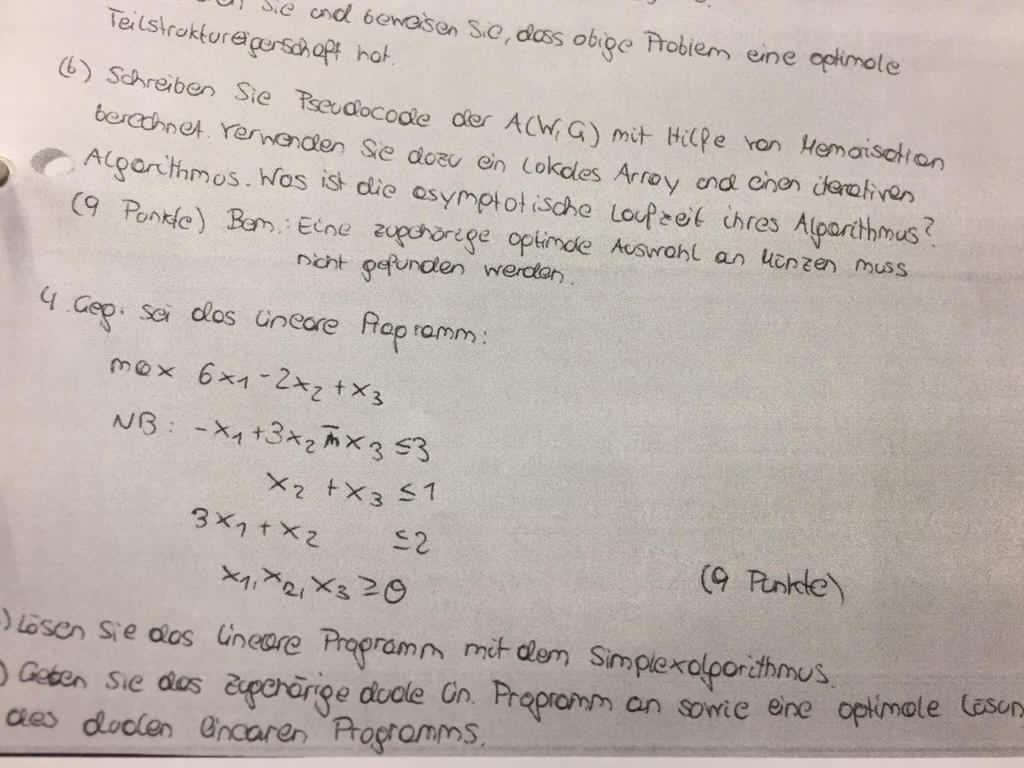 Sie und beweisen Sie, dass obige Problem eine optimole
Teilstruktureigenschaft hat.
(b) Schreiben Sie Pseudocode der A(W,G) mit Hilfe von Memoisation
berechnet. Verwenden Sie dazu ein lokales Array und einen iterativen
Algorithmus. Was ist die asymptotische Laufzeit ihres Algorithmus?
(9 Punkte) Bem.: Eine zugehörige optimale Auswahl an Münzen muss
nicht gefunden werden.
4. Geg. sei das lineare Programm:
max 6x₁ - 2x₂ + x₃
NB: -x₁ + 3x₂ x₃ ≤ 3
x₂ + x₃ ≤ 1
3x₁ + x₂ ≤ 2
x₁, x₂, x₃ ≥ 0
(9 Punkte)
) Lösen Sie das lineare Programm mit dem Simplexalgorithmus.
) Geben Sie das zugehörige duale lin. Programm an sowie eine optimale Lösun
des dualen linearen Programms.